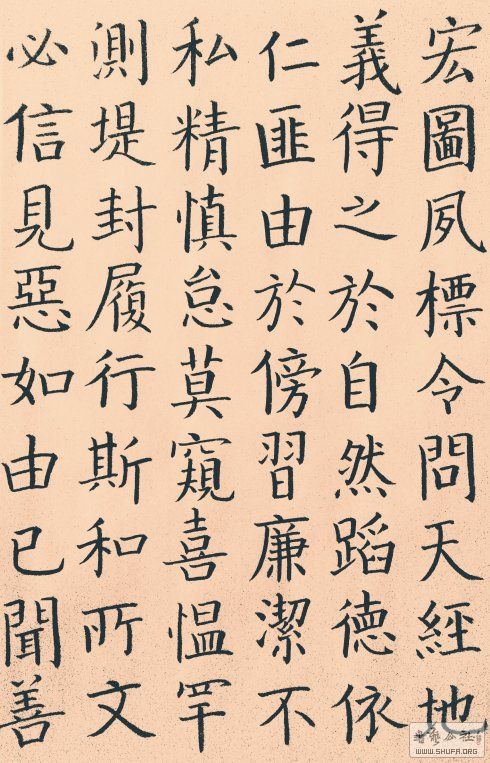 宏圖夙標令問天經地
義得之於自然蹈德依
仁匪由於傍習廉潔不
私精慎怠莫窺喜愠罕
測堤封履行斯和所文
必信見惡如由已聞善
WWW.SHUFA.ORG